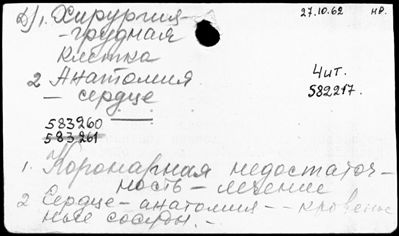 Д) 1. Хирургия - 27.10.62 НР.
- грудная
клетка
2 Анатомия
- сердце
Чит.
582217.
583260
583261
1. Коронарная недостаточ-
ность - лечение
2 Сердце - анатомия -- кровенос
ные сосуды. -